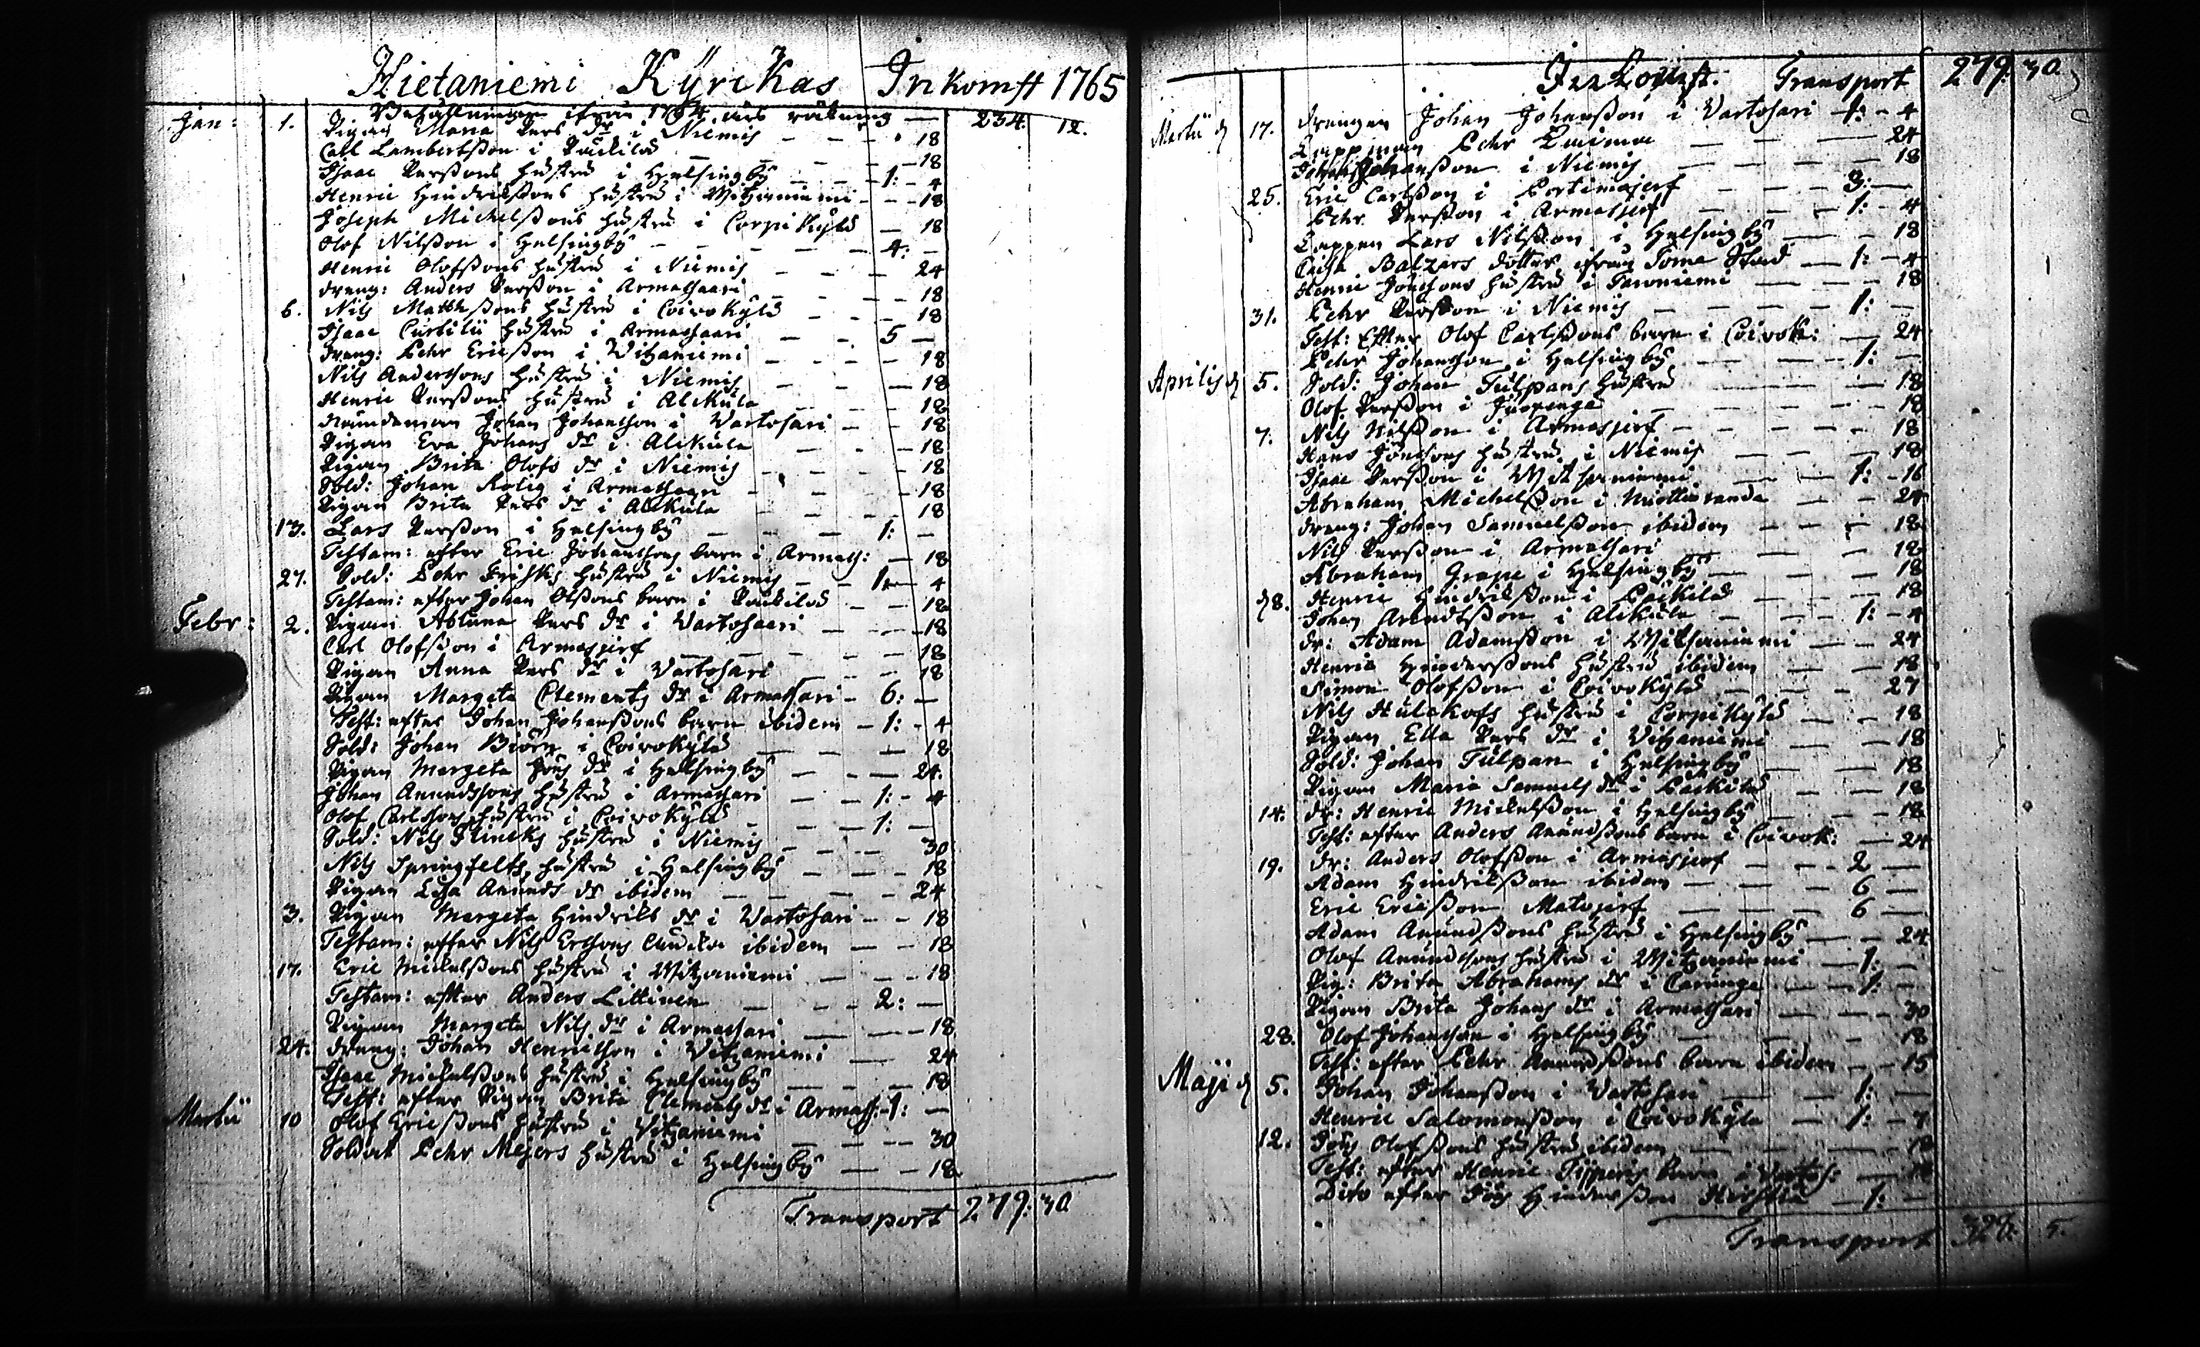 Hietaniemi Kÿrckas Inkomst 1765
Behållningen ifrån 1764 års räkning — 234. 12.
Jan: 1. Pigan Maria Pers dr i Niemis - - - 18
Carl Lambertsson i Päckilä — — 18
Isaac Perssons hustru i Helsingbÿ - - 1: - 4
Henric Hindrikssons hustru i Witzaniemi - - 18
Joseph Michelssons hustru i Corpikÿlä - 18
Olof Nilsson i Helsingbÿ - - - 4: —
Henric Olofssons hustru i Niemis - - - 24
dräng: Anders Persson i Armassaari - - 18
6. Nils Matthssons hustru i Coivokÿlä - - - 18
Isaac hustru i Armassaari - - 5 —
dräng: Pehr Ericsson i Vitzaniemi - - - 18
Nils Anderssons hustru i Niemis - - - 18
Henric Perssons hustru i Alikÿla - - - 18
Nämdeman Johan Johansson i Vartosari - - 18
Pigan Eva Johans dr i Alikula - - - 18
Pigan Brita Olofs dr i Niemis - - - 18
Sold: Johan Rolig i Armassaari - - - 18
Pigan Brita Pers dr i Alikula - - - 18
13. Lars Persson i Helsingbÿ - - - 1: —
Testam: efter Eric Johanssons barn i Armass: — 18
27. Sold: Pehr Frisks hustru i Niemis - - 1: - 4
Testam: efter Johan Olssons barn i Päckilä - - 18
Febr: 2. Pigan Abluna Pers dr i Vartosaari - - 18
Carl Olofsson i Armasjerf - - - 18
Pigan Anna Pers dr i Vartosari - - - 18
Pigan Margeta Clements dr i Armassari - 6: —
Test: efter Johan Johanssons barn ibidem - 1: - 4
Sold: Johan Biörn i Coivokÿlä - - - 18
Pigan Margeta Jöns dr i Helsingbÿ - - - 24
Johan Anundssons hustru i Armassari - - 1: - 4
Olof Carlssons hustru i Coivokÿlä - - 1: —
Sold: Nils hustru i Niemis - - - 30
Nils Springfelts hustru i Helsingbÿ - - 18
Pigan Anunds dr ibidem - - - 24
3. Pigan Margeta Hindriks dr i Vartosari - - 18
Testam: efter Nils Erssons ibidem - - 18
17. Eric Mickelssons hustru i Witzaniemi - - - 18
Testam: efter Anders Littinen - - - 2: —
Pigan Margeta Nils dr i Armassari - - - 18
24. dräng: Johan Henricsson i Vitzaniemi — 24
Isaac Michelssons hustru i Helsingbÿ - - - 18
Test: efter Pigan Brita Clements dr i Armass: 1: —
Martii 10 Olof Ericssons hustru i Vitzaniemi - - - 30
Soldat Pehr Mejers hustru i Helsingbÿ - - 18
Transport 279: 30
Inkomst. Transport 279: 30.
Martii d 17. drengen Johan Johansson i Vartosari 1: - 4
Lappman Pehr - - - 24
Johan Johansson i Niemis - - - 18
25. Eric Carlsson i Portimojerf - - 3: —
Pehr Persson i Armasjerf - - - 1: - 4
Lappen Lars Nilsson i Helsingbÿ - - 18
Caisa Balzars dotter ifrån Torne Stad — 1: - 4
Henric Jönssons hustru i Taroniemi - - 18
31. Pehr Persson i Niemis - - - 1: —
Test: Efter Olof Carlssons barn i Coivok: - 24
Pehr Johansson i Helsingbÿ - - - 1: —
Aprilis d 5. Sold: Johan Tulpans hustru - - - 18
Olof Persson i Juoxenge - - - 18
7. Nils Nilsson i Armasjerf - - - 18
Hans Jönssons hustru i Niemis - - - 18
Isaac Persson i Witsaniemi - - 1: - 16
Abraham Michelsson i - - 24
dräng: Johan Samuelsson ibidem - - - 18
Nils Persson i Armassari - - - 18
Abraham Grape i Helsingbÿ - - - 18
d 8. Henric Hindriksson i Päckilä - - - 18
Johan Anundsson i Alikula - - 1: - 4
dr: Adam Adamsson i Witsaniemi - - 24
Henric Hinderssons hustru ibidem - - 18
Simon Olofsson i Coivokÿlä - - - 27
Nils hustru i Corpikÿlä - - 18
Pigan Ella Pers dr i Vitzaniemi - - 18
Sold: Johan Tulpan i Helsingbÿ - - - 18
Pigan Maria Samuels dr i Päckilä - - 18
14. dr: Henric Mickelsson i Helsingbÿ - - 18
Test: efter Anders Anundssons barn i Coivok: — 24
19. dr: Anders Olofsson i Armasjerf - - 2 —
Adam Hindriksson ibidem - - - 6 —
Eric Ericsson Matojerf - - - 6 —
Adam Anundssons hustru i Helsingbÿ - - 24
Olof Anundssons hustru i Witzaniemi - 1: —
Pig: Brita Abrahams dr i Carunge - - 1: —
Pigan Brita Johans dr i Armassari - - - 30
28. Olof Johansson i Helsingbÿ - - - 18
Test: efter Pehr Anundssons barn ibidem - - 15
Maji d 5. Johan Johansson i Vartosari - - 1: —
Henric Salomonsson i Coivokÿla - 1: - 7
12. Jöns Olofssons hustru ibidem - - - 18
Test: efter Henric barn i Vartos: — 18
Dito efter Jöns Hindersson - 1: —
Transport 328: 5.